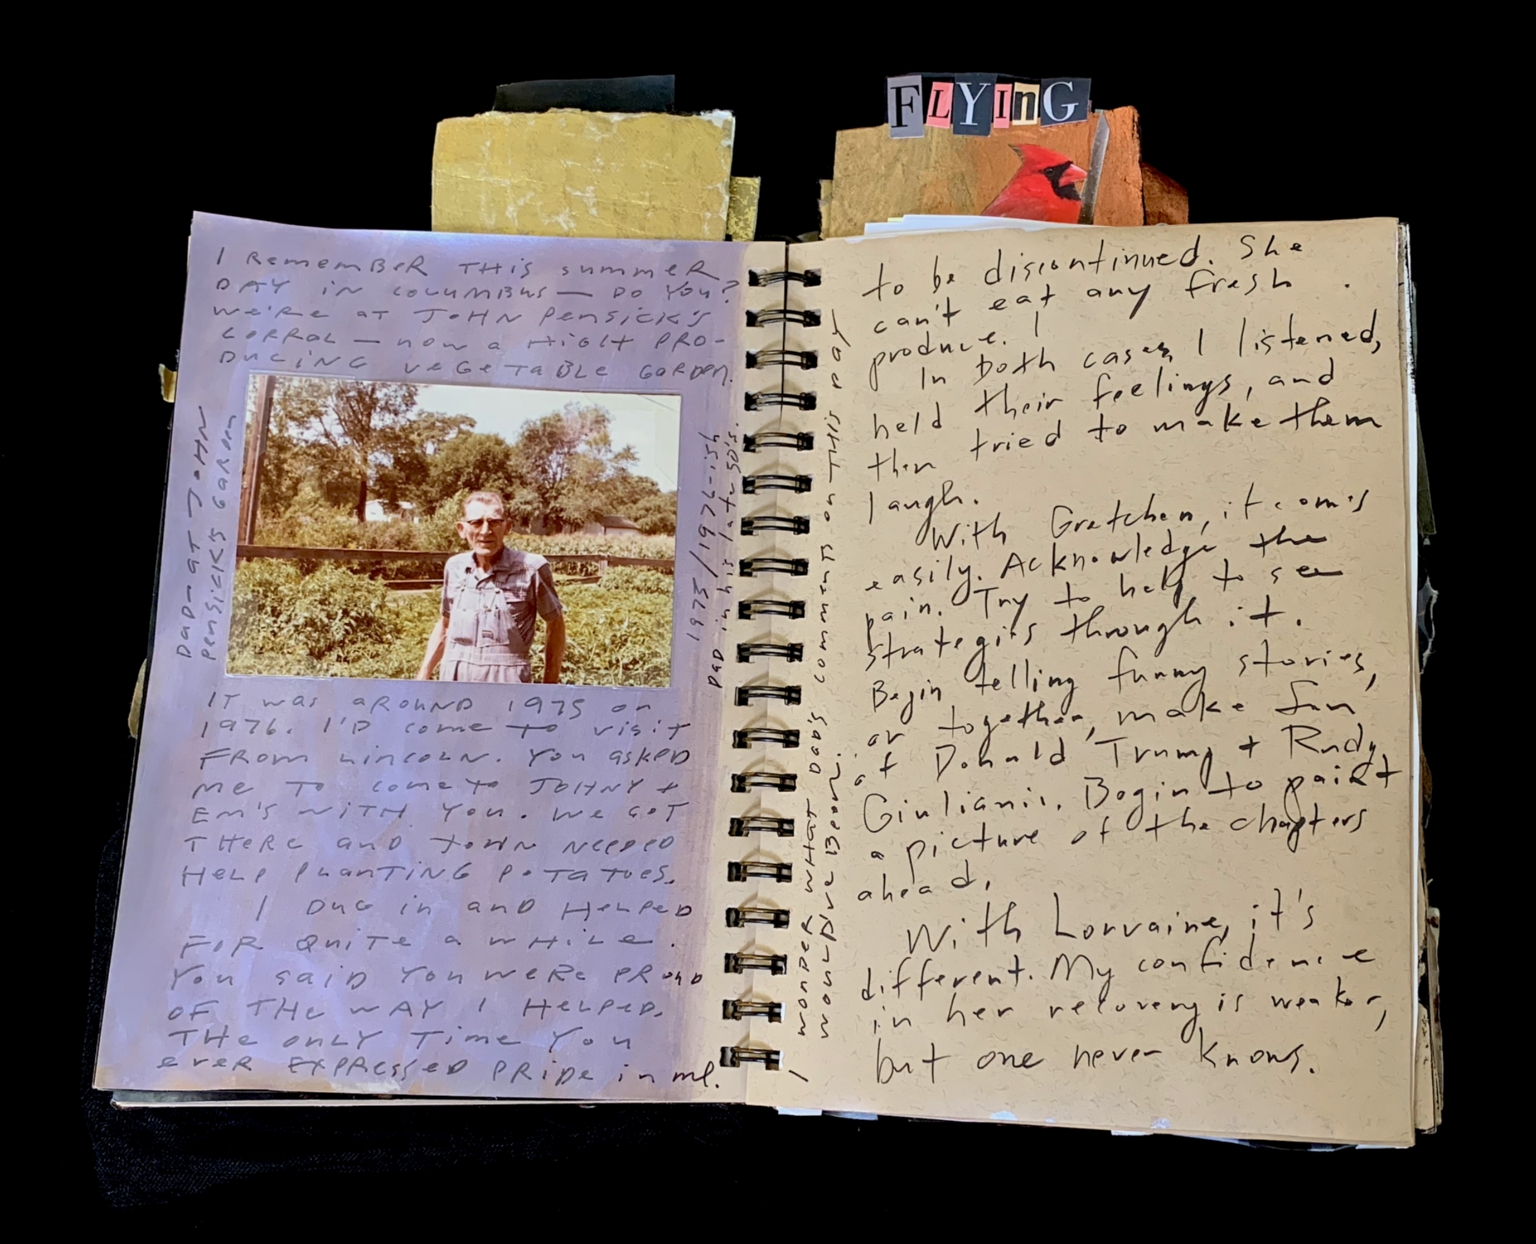 FLYInG
I REMEMBER THIS summer
DAY in COLUMBUS — DO YOU?
We're AT JOHN Pensick's
CORRAL — now a HIGH PRO-
DUCING VEGETABLE GARDEN.
DAD — AT JOHN
Pensick's GARDEN
1975/1976-ish
DAD in his late 50's.
IT was AROUND 1975 or
1976. I'D come to visit
FROM Lincoln. You asked
me TO come to JOHNY +
EM'S WITH YOU. We GOT
THERE and JOHN needed
HELP PLANTING POTATOES.
I DUG in and HELPED
FOR QUITE a WHILE.
You said You WERE PROUD
OF THE WAY I HELPED.
THE ONLY TIME YOU
ever EXPRESSED PRIDE in me.
I wonder WHAT DAD'S comments on THIS DAY
would have Been.
to be discontinued. She
can't eat any fresh
produce.
In both cases, I listened,
held their feelings, and
then tried to make them
laugh.
With Gretchen, it comes
easily. Acknowledge the
pain. Try to help to see
strategies through it.
Begin telling funny stories,
or together, make fun
of Donald Trump + Rudy
Giuliani. Begin to paint
a picture of the chapters
ahead.
With Lorraine, it's
different. My confidence
in her recovery is weaker,
but one never knows.